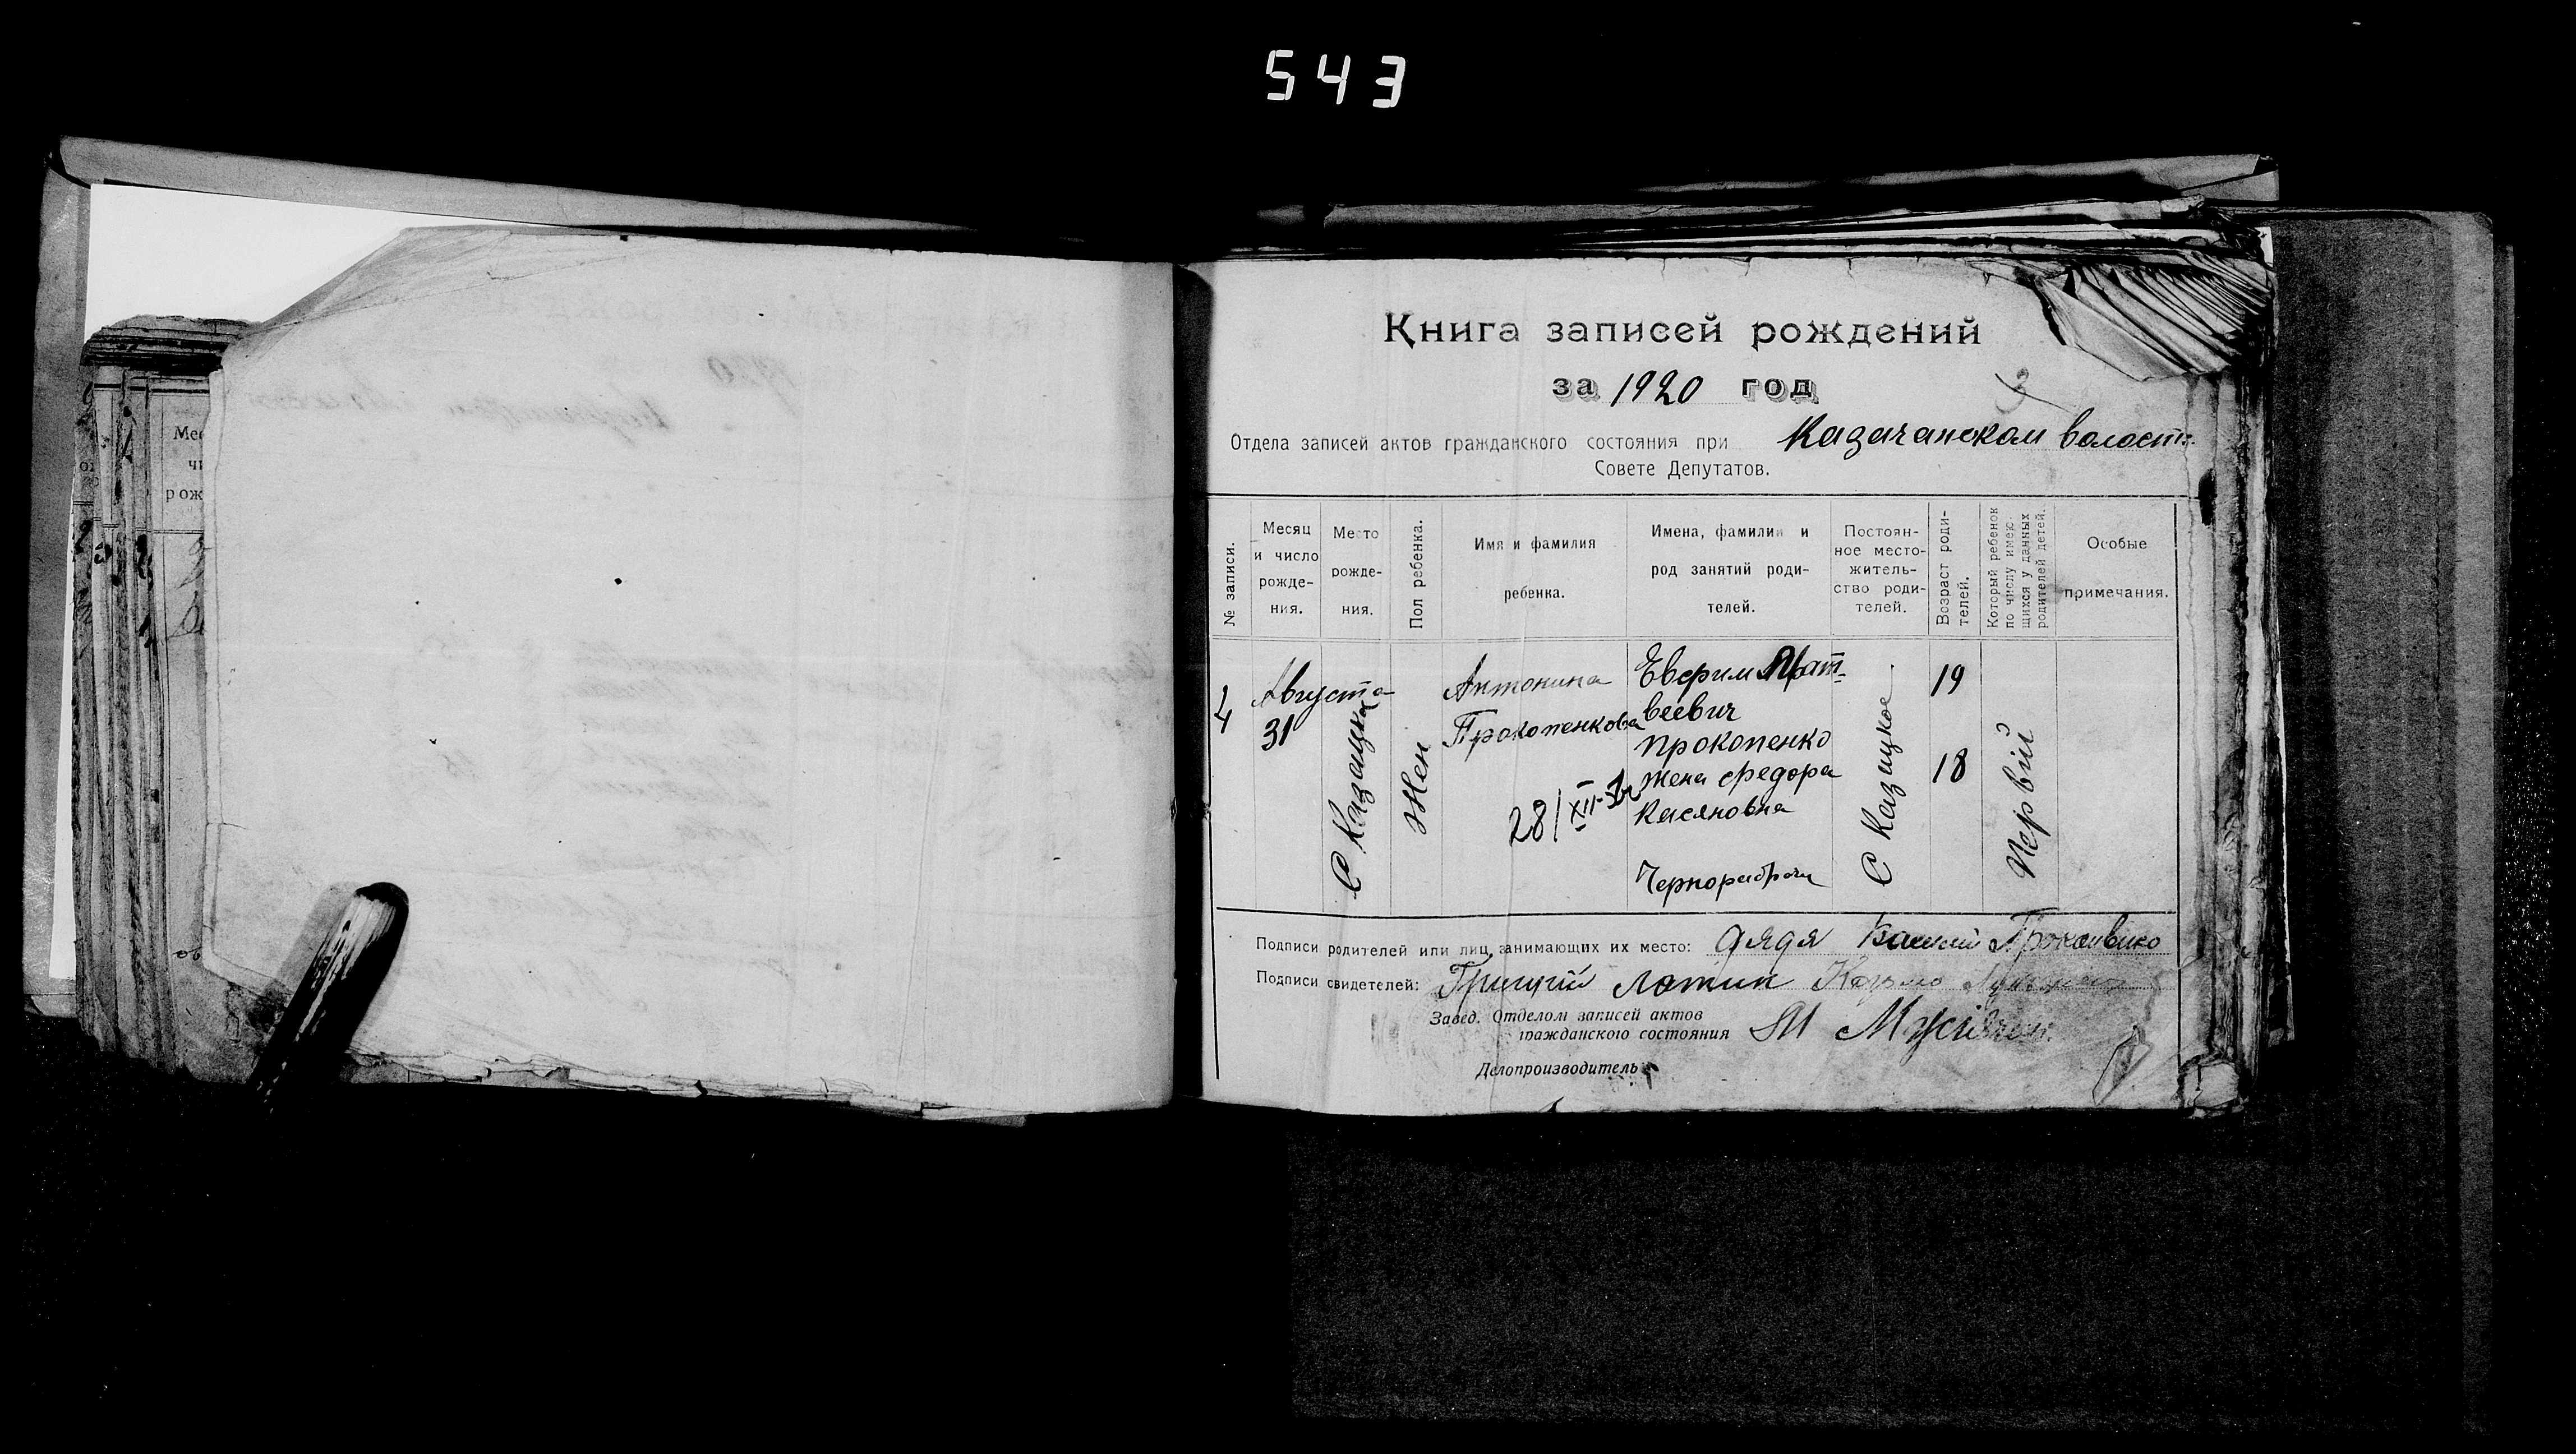 543
Книга записей рождений
за 1920 год
Отдела записей актов гражданского состояния при Казачанском волостн.
Совете Депутатов.
№ записи.
Месяц и число рожде-ния.
Место рожде-ния.
Пол ребенка.
Имя и фамилия ребенка.
Имена, фамилии и род занятий роди-телей.
Постоян-ное место-житель-ство роди-телей.
Возраст роди-телей.
Который ребенок по числу имею-щихся у данных родителей детей.
Особые примечания.
Августа
31
С Казацка
Жен
Антонина
Прокопенкова
28/XII
Евфим Мат-
веевич
Прокопенко
жена федора
Касяновна
Чернорабочи
С Казицкое
19
18
Первій
Подписи родителей или лиц, занимающих их место: дядя
Подписи свидетелей:
Завед. Отделом записей актов
гражданского состояния
Делопроизводитель
Мес
чи
рож